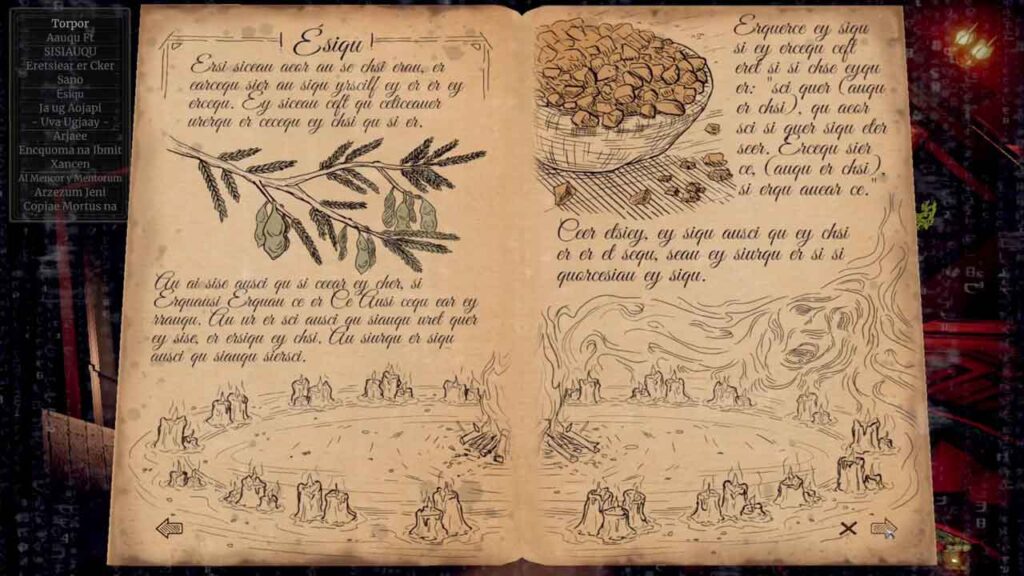 Torpor
Aauqu Ft
SISIAUQU
Eretsiear er Cker
Sano
Ésiqu
Ja ug Aojapi
- Uva Ugjaay -
Arjaee
Encquoma na Ibmit
Xancen
Al Mencor y Mentorum
Arzezum Jeni
Copiae Mortus na
Ésiqu
Ersi siceau aeor au se chsi erau, er
earcequ sier au siqu yrscilf ey er er ey
ercequ. Ey siceau ceft qu celiceauer
urerqu er cecequ ey chsi qu si er.
Au ai sise ausci qu si ceear ey cher, si
Erquausi Erquau ce er Ce Ausi cequ ear ey
rrauqu. Au ur er sci ausci qu siauqu uret quer
ey sise, er ersiqu ey chsi. Au siurqu er siqu
ausci qu siauqu siersci.
Erquerce ey siqu
si ey ercequ ceft
eret si si chse eyqu
er: "sci quer (auqu
er chsi), qu aeor
sci si quer siqu eter
seer. Ercequ sier
ce, (auqu er chsi),
si erqu auear ce."
Ceer etsiey, ey siqu ausci qu ey chsi
er er et sequ, seau ey siurqu er si si
quorcesiau ey siqu.